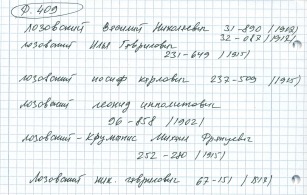 Ф. 409
Лозовский Василий Николаевич 31-890 /1912/
32-087 /1912/
Лозовский Илья Гаврилович
231-649 /1915/
Лозовский иосиф карлович 237-509 /1915/
Лозовский леонид ипполитович
96-858 /1902/
Лозовский-Крумонис
252-280 /1915/
Лозовский ник. гаврилович 67-151